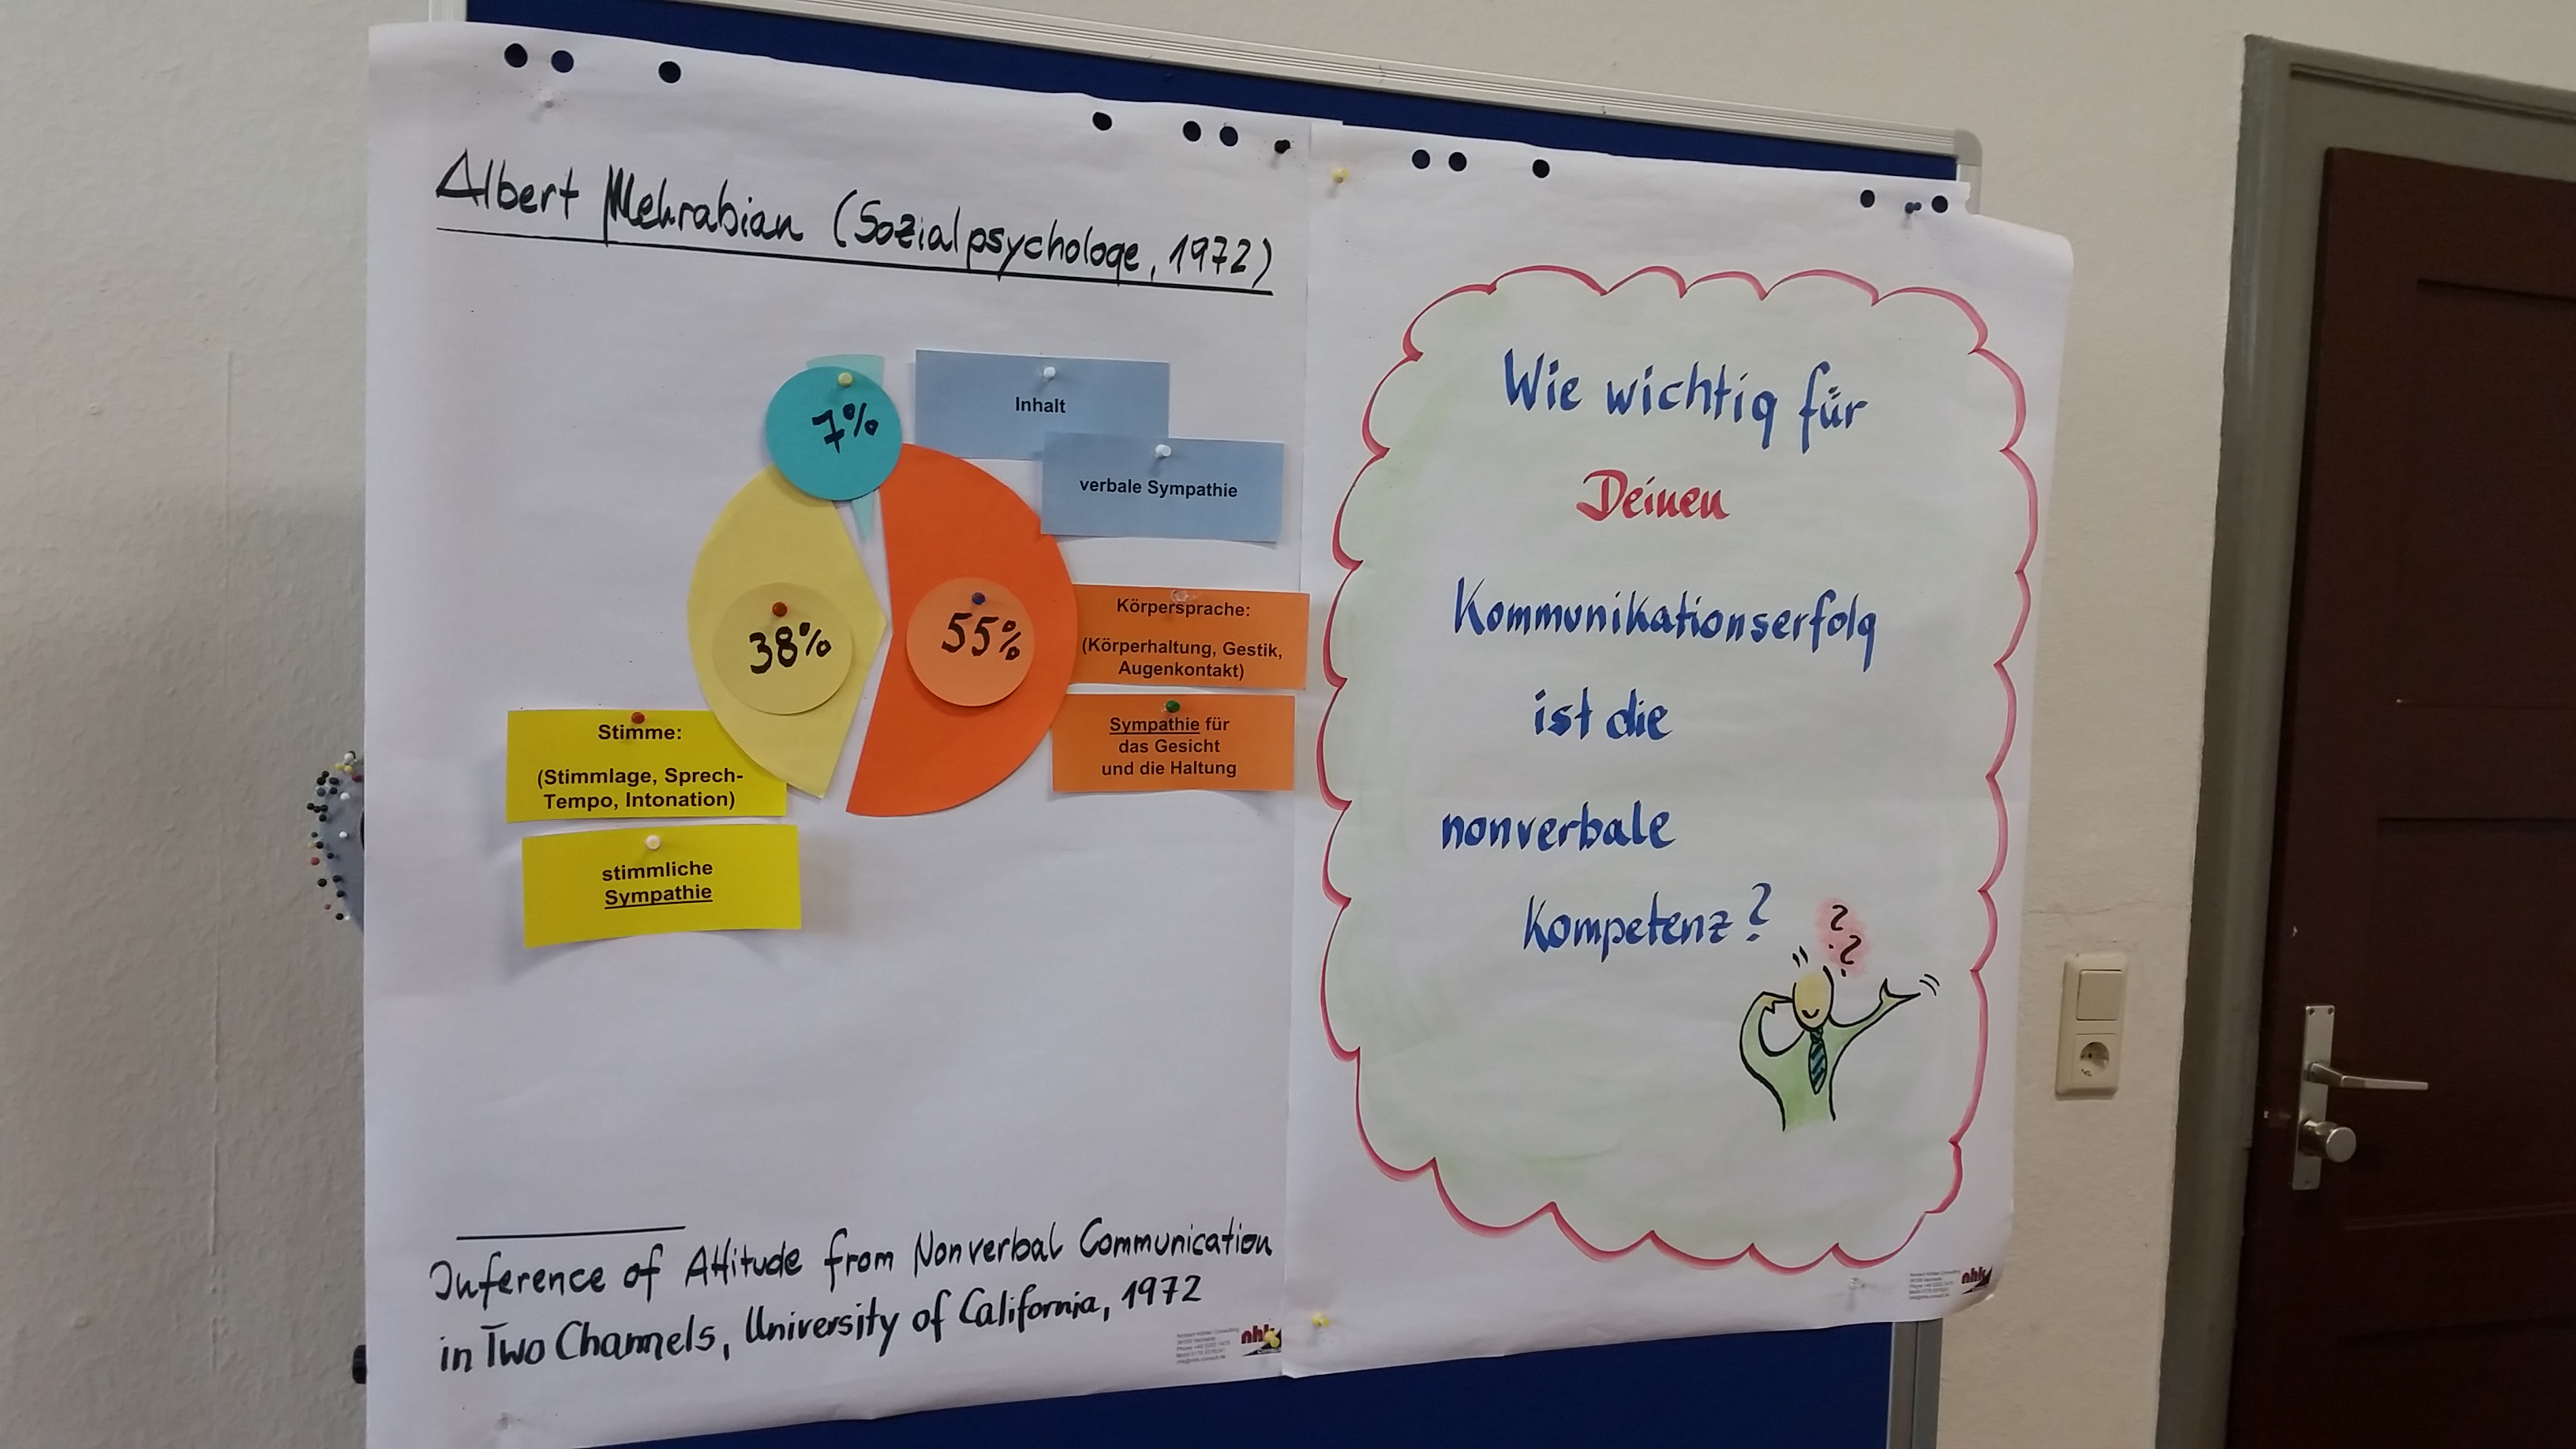 Albert Mehrabian (Sozialpsychologe, 1972)
7%
Inhalt
verbale Sympathie
38%
55%
Körpersprache:
(Körperhaltung, Gestik,
Augenkontakt)
Sympathie für
das Gesicht
und die Haltung
Stimme:
(Stimmlage, Sprech-
Tempo, Intonation)
stimmliche
Sympathie
Inference of Attitude from Nonverbal Communication
in Two Channels, University of California, 1972
Wie wichtig für
Deinen
Kommunikationserfolg
ist die
nonverbale
Kompetenz?
?
?